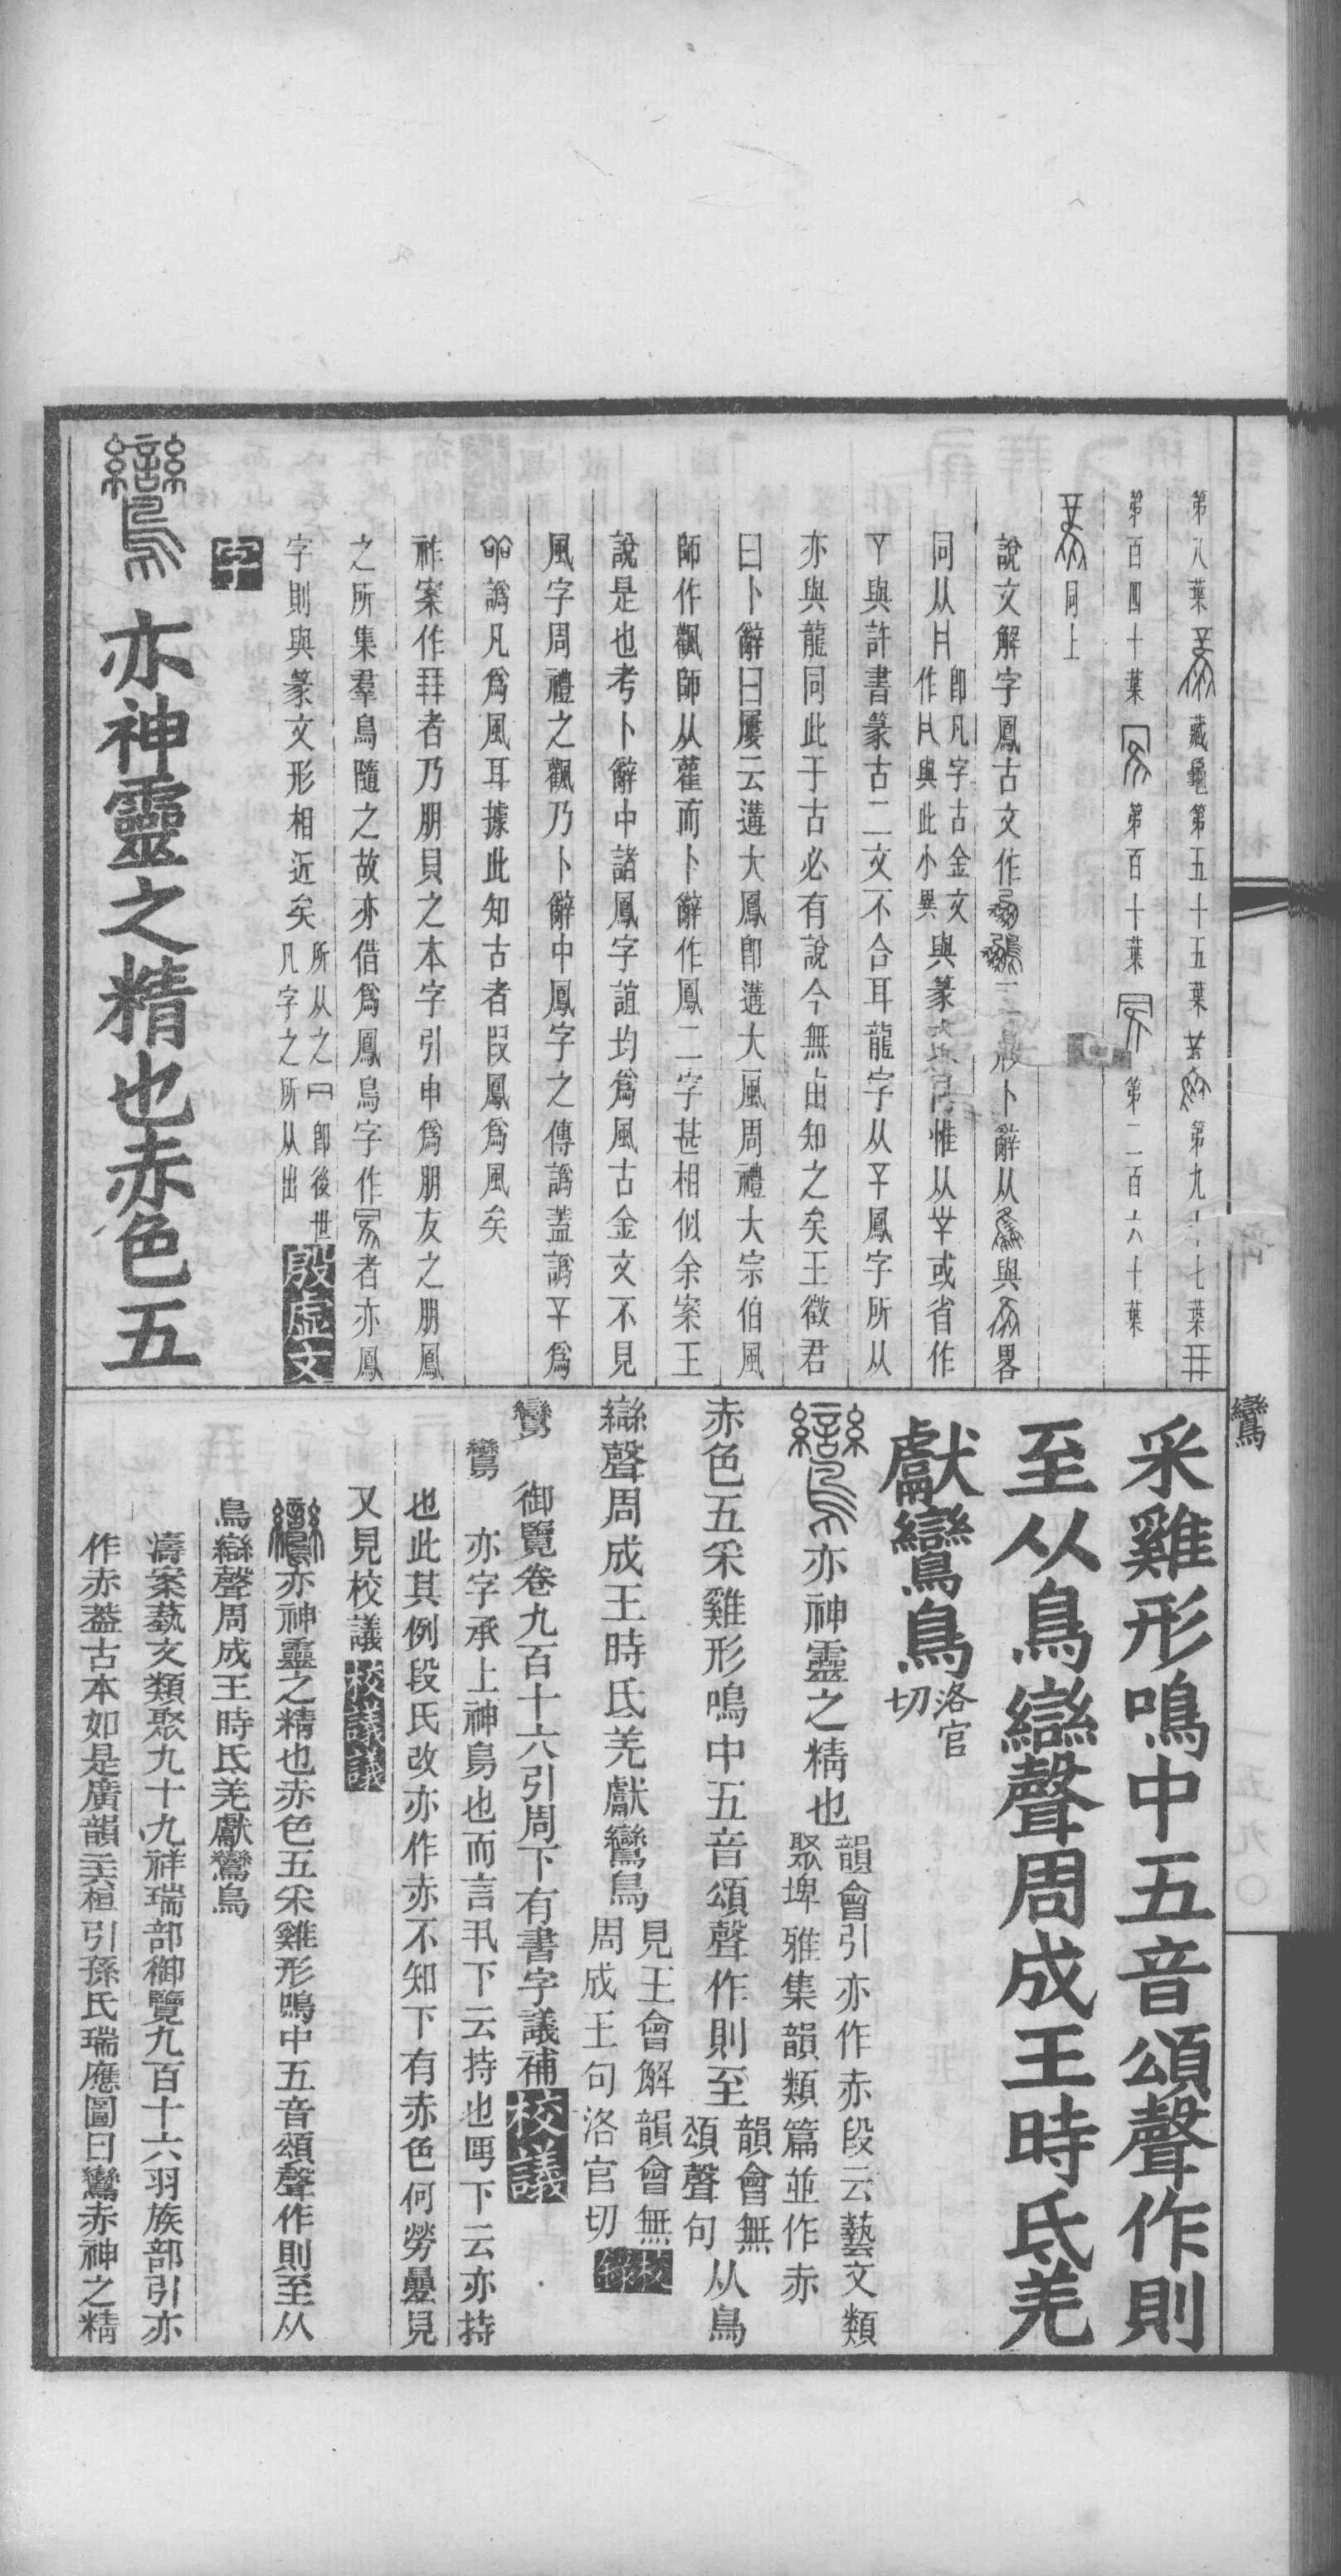 第八葉藏龜第五十五葉第九十七葉
第百四十葉第百十葉第二百六十葉
同上
說文解字鳳古文作二形卜辭从與畧
同从即凡字古金文作與此小異與篆惟从或省作
與許書篆古二文不合耳龍字从鳳字所从
亦與龍同此于古必有說今無由知之矣王徵君
曰卜辭曰屢云遘大鳳即遘大風周禮大宗伯風
師作飌師从雚而卜辭作鳳二字甚相似余案王
說是也考卜辭中諸鳳字誼均爲風古金文不見
風字周禮之飌乃卜辭中鳳字之傳譌蓋譌爲
譌凡爲風耳據此知古者叚鳳爲風矣
祚案作者乃朋貝之本字引申爲朋友之朋鳳
之所集羣鳥隨之故亦借爲鳳鳥字作者亦鳳
字則與篆文形相近矣所从之即後世凡字之所从出殷虛文
字
亦神靈之精也赤色五
鸞
采雞形鳴中五音頌聲作則
至从鳥䜌聲周成王時氐羌
獻鸞鳥洛官切
亦神靈之精也韻會引亦作赤段云藝文類聚埤雅集韻類篇並作赤
赤色五采雞形鳴中五音頌聲作則至韻會無頌聲句从鳥
䜌聲周成王時氐羌獻鸞鳥見王會解韻會無周成王句洛官切校錄
鸞 御覽卷九百十六引周下有書字議補校議
鸞 亦字承上神鳥也而言丮下云持也𠨭下云亦持
也此其例段氏改亦作赤不知下有赤色何勞曡見
又見校議校議議
亦神靈之精也赤色五采雞形鳴中五音頌聲作則至从
鳥䜌聲周成王時氐羌獻鸞鳥
濤案蓺文類聚九十九祥瑞部御覽九百十六羽族部引亦
作赤葢古本如是廣韻二十六桓引孫氏瑞應圖曰鸞赤神之精